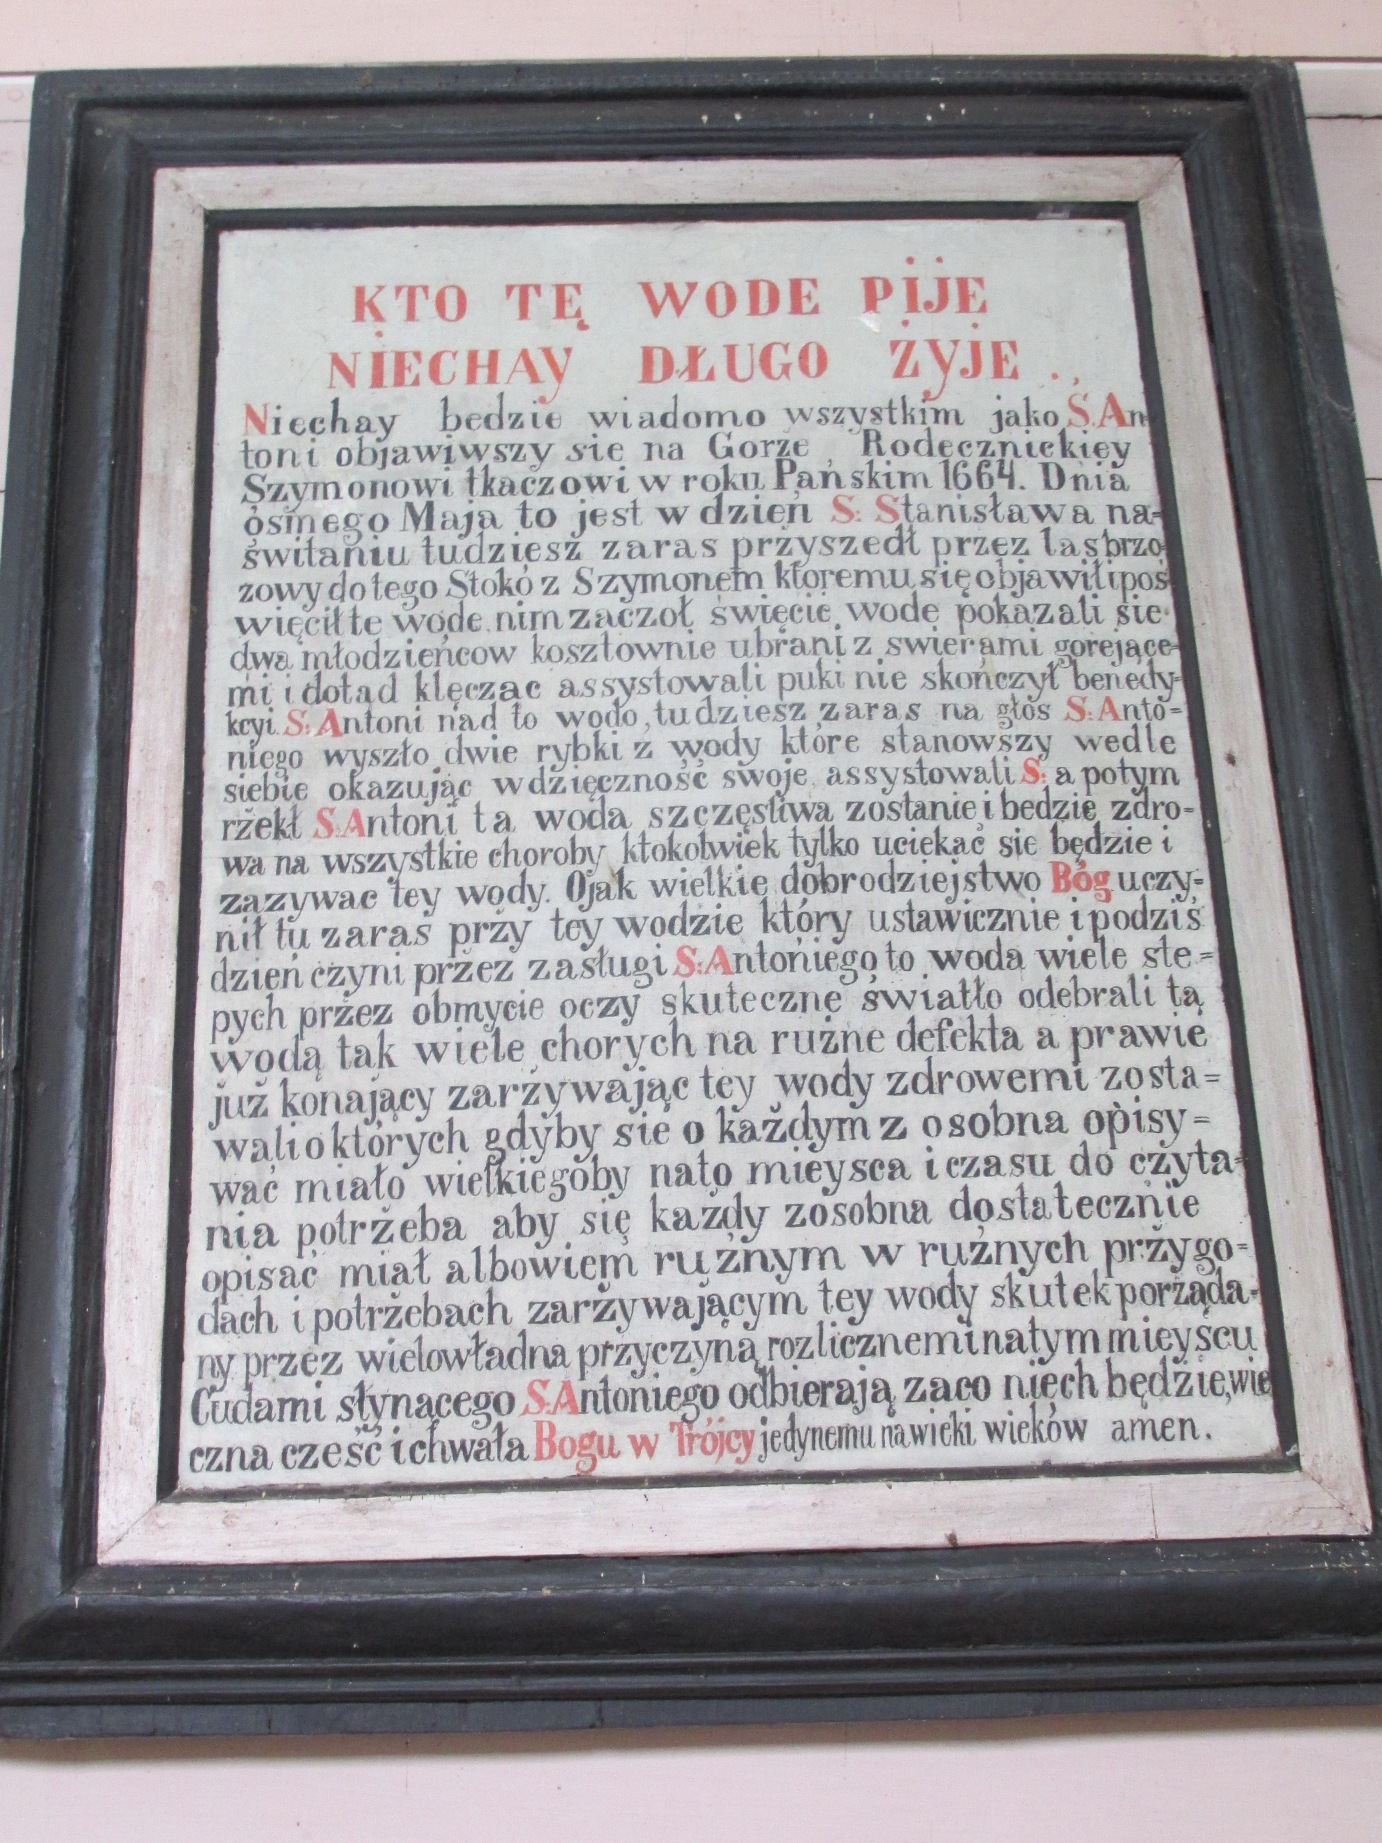 KTO TĘ WODE PIJE
NIECHAY DŁUGO ŻYJE
Niechay będzie wiadomo wszystkim jako S. An
toni objawiwszy się na Gorze Rodecznickiey
Szymonowi tkaczowi w roku Pańskim 1664. Dnia
osmego Maja to jest w dzień S: Stanisława na=
świtaniu tudziesz zaras przyszedł przez las brzo=
zowy do tego Stoko z Szymonem ktoremu się objawił i poś
więcił te wodę nim zaczoł święcie wodę pokazali się
dwa młodzieńcow kosztownie ubrani z swierami gorejące=
mi i dotąd klęcząc assystowali puki nie skończył benedy=
kcyi. S: Antoni nad to wodo, tudziesz zaras na głos S: Anto=
niego wyszło dwie rybki z wody które stanowszy wedle
siebie okazując wdzięczność swoje assystowali S: a potym
rżekł S: Antoni ta woda szczęsliwa zostanie i bedzie zdro=
wa na wszystkie choroby ktokolwiek tylko uciekać sie będzie i
zazywac tey wody. O jak wielkie dobrodziejstwo Bóg uczy=
nił tu zaras przy tey wodzie który ustawicznie i podziś
dzień czyni przez zasługi S: Antoniego to woda wiele śle=
pych przez obmycie oczy skuteczne światło odebrali tą
wodą tak wiele chorych na rużne defekta a prawie
już konający zarżywając tey wody zdrowemi zosta=
wali o których gdyby sie o każdym z osobna opisy=
wać miało wielkiegoby nato mieysca i czasu do czyta=
nia potrżeba aby się każdy zosobna dostatecznie
opisać miał albowiem rużnym w rużnych przygo=
dach i potrżebach zarżywającym tey wody skutek porżąda=
ny przez wielowładna przyczyną rozlicznemi natym mieyscu
Cudami słynącego S: Antoniego odbierają zaco niech będzie, wie
czna cześć i chwała Bogu w Trójcy jedynemu na wieki wieków amen.